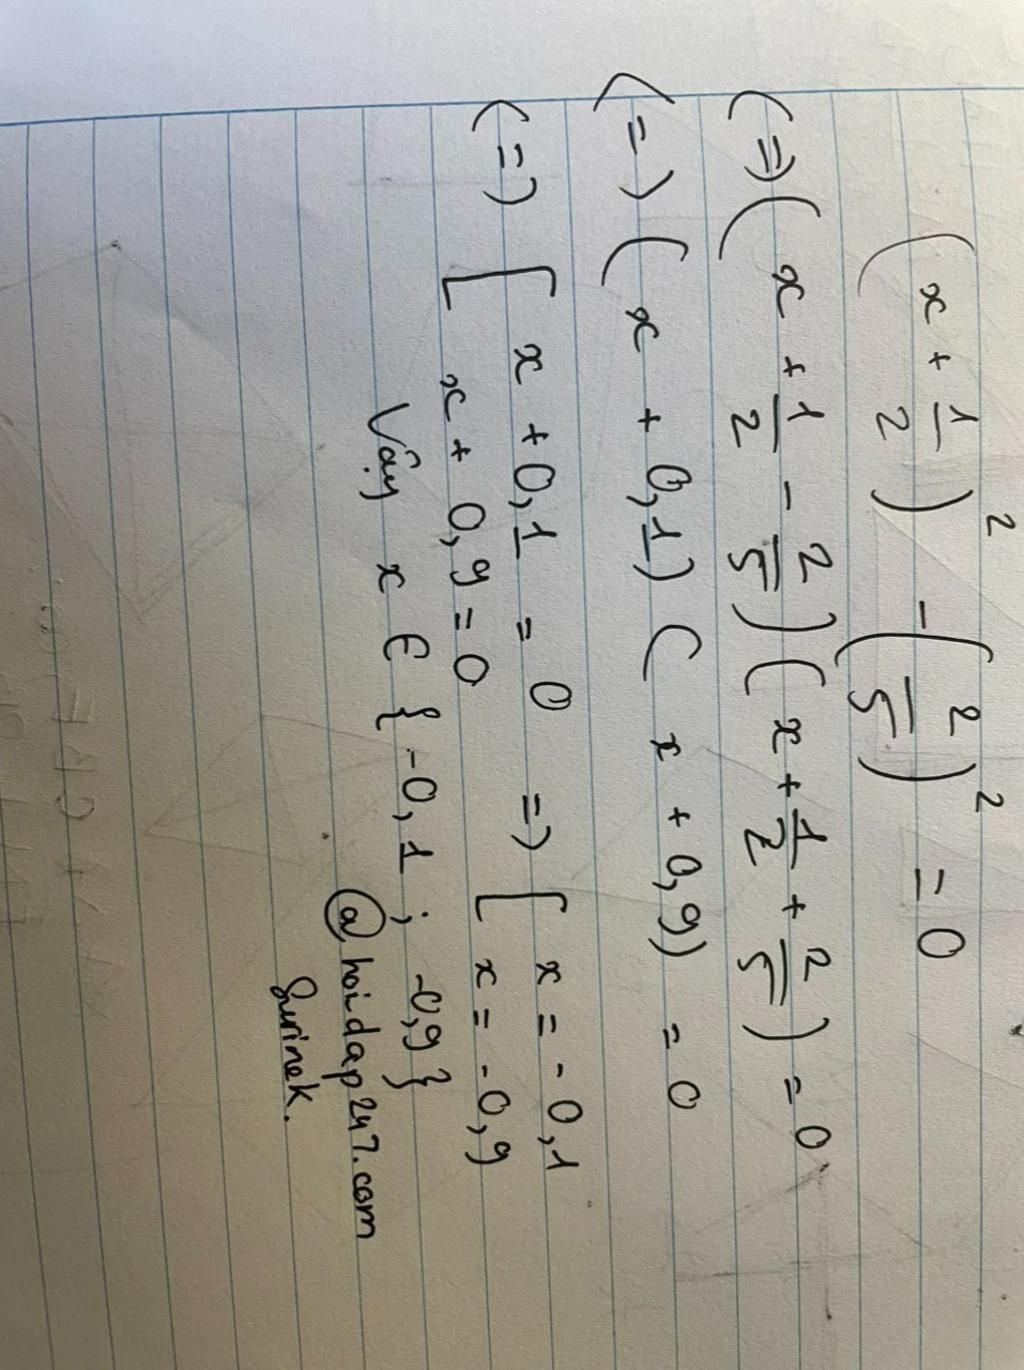 (x + 1/2)² - (2/5)² = 0
(=) (x + 1/2 - 2/5) (x + 1/2 + 2/5) = 0
(=) (x + 0,1) (x + 0,9) = 0
(=) [ x + 0,1 = 0 => [ x = -0,1
x + 0,9 = 0 x = -0,9
Vậy x ∈ {-0,1 ; -0,9}
@hoidap247.com